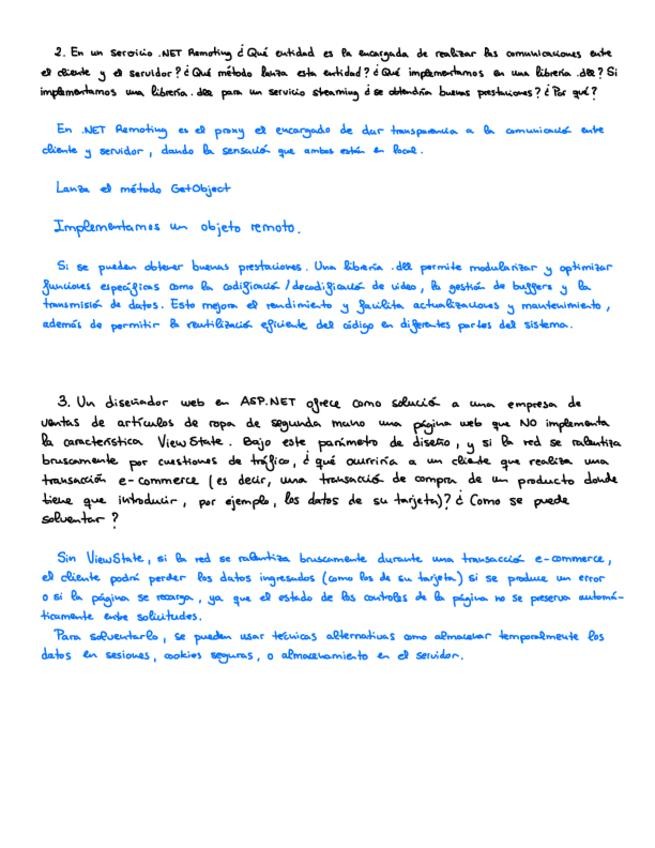 2. En un servicio .NET Remoting ¿Qué entidad es la encargada de realizar las comunicaciones entre
el cliente y el servidor? ¿Qué método lanza esta entidad? ¿Qué implementamos en una librería .dll? Si
implementamos una librería .dll para un servicio streaming ¿se obtendría buenas prestaciones? ¿Por qué?
En .NET Remoting es el proxy el encargado de dar transparencia a la comunicación entre
cliente y servidor, dando la sensación que ambos están en local.
Lanza el método GetObject
Implementamos un objeto remoto.
Si se pueden obtener buenas prestaciones. Una librería .dll permite modularizar y optimizar
funciones específicas como la codificación/decodificación de video, la gestión de buffers y la
transmisión de datos. Esto mejora el rendimiento y facilita actualizaciones y mantenimiento,
además de permitir la reutilización eficiente del código en diferentes partes del sistema.
3. Un diseñador web en ASP.NET ofrece como solución a una empresa de
ventas de artículos de ropa de segunda mano una página web que NO implementa
la característica ViewState. Bajo este parámetro de diseño, y si la red se ralentiza
bruscamente por cuestiones de tráfico, ¿qué ocurriría a un cliente que realiza una
transacción e-commerce (es decir, una transacción de compra de un producto donde
tiene que introducir, por ejemplo, los datos de su tarjeta)? ¿Como se puede
solventar?
Sin ViewState, si la red se ralentiza bruscamente durante una transacción e-commerce,
el cliente podrá perder los datos ingresados (como los de su tarjeta) si se produce un error
o si la página se recarga, ya que el estado de los controles de la página no se preserva automá-
ticamente entre solicitudes.
Para solventarlo, se pueden usar técnicas alternativas como almacenar temporalmente los
datos en sesiones, cookies seguras, o almacenamiento en el servidor.